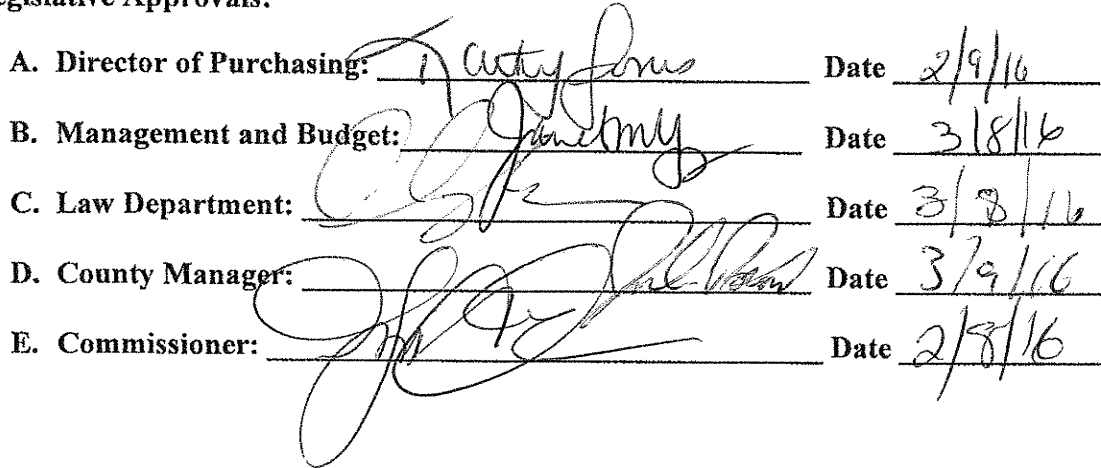 egislative Approvals:
A. Director of Purchasing: Date 2/9/16
B. Management and Budget: Date 3/8/16
C. Law Department: Date 3/8/16
D. County Manager: Date 3/9/16
E. Commissioner: Date 2/8/16